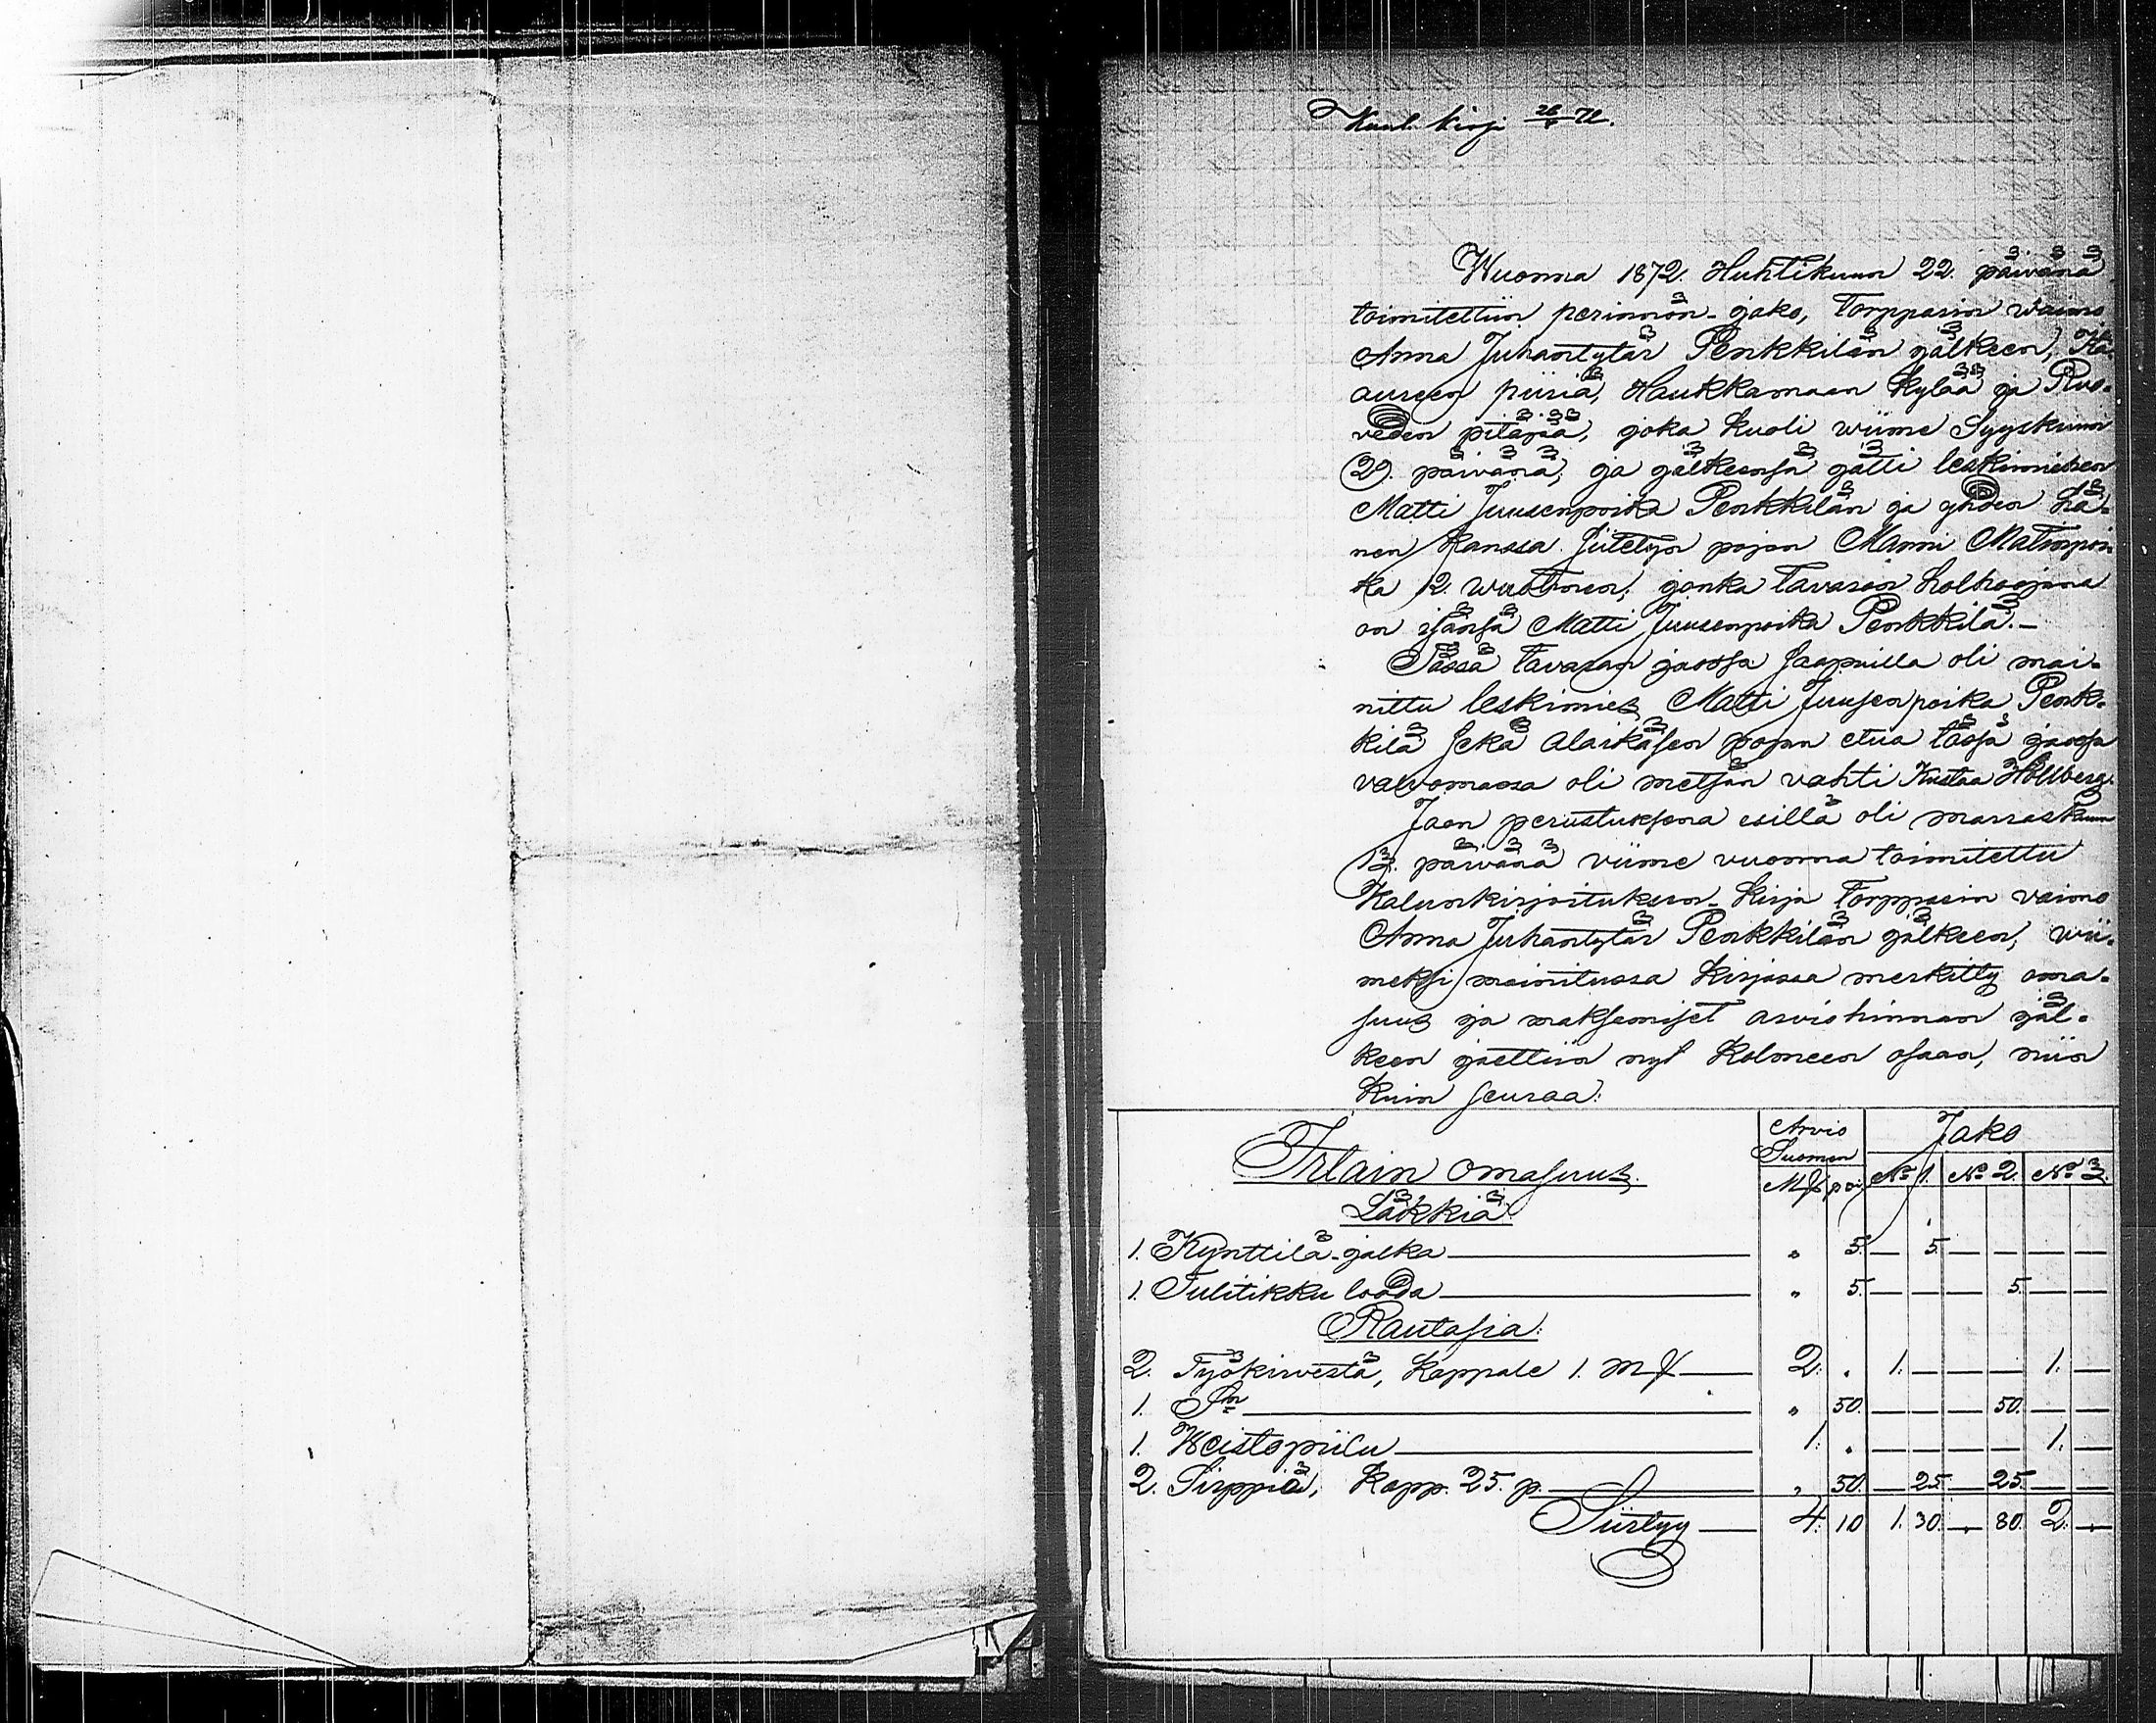 Kuul. kirja 26/4 72.
Wuonna 1872. Huhtikuun 22. päivänä
toimitettiin perinnön-jako, Torpparin waimo
Anna Juhantytär Penkkilän jälkeen, Ka-
aureen piiriä, Haukkamaan kylää ja Ruo-
veden pitäjää, joka kuoli wiime Syyskuun
29. päivänä, ja jälkeensä jätti leskimiehen
Matti Juusenpoika Penkkilän ja yhden hä-
nen kanssa siitetyn pojan Manni Matinpoi-
ka 12. wuotinen, jonka tavaran holhoojana
on isänsä Matti Juusenpoika Penkkilä.-
Tässä tavaran jaossa saapuilla oli mai-
nittu leskimies Matti Juusenpoika Penk-
kilä sekä alaikäsen pojan etua tässä jaossa
valvomassa oli metsän vahti Kustaa Hollberg.
Jaon perustuksena esillä oli marraskuun
13. päivänä viime vuonna toimitettu
Kalunkirjoituksen-kirja Torpparin vaimo
Anna Juhantytär Penkkilän jälkeen, wii-
meksi mainitussa kirjassa merkitty oma-
suus ja maksemiset arviohinnan jäl-
keen jaettiin nyt kolmeen osaan, niin
kuin seuraa:
Irtain omasuus. Arvio Suomen Mk pri Jako No 1. No 2. No 3.
Läkkiä
1. Kynttilä-jalka — „ 5. — 5. — — — —
1. Tulitikku looda — „ 5. — — — 5. — —
Rautasia:
2. Työkirvestä, kappale 1. mk — 2. „ 1. — — — 1. —
1. Sn — „ 50. — — — 50. — —
1. Weistopiilu — 1. „ — — — — 1. —
2. Sirppiä, kapp. 25. p. — „ 50. — 25. — 25. — —
Siirtyy — 4. 10 1. 30. „ 80. 2. „